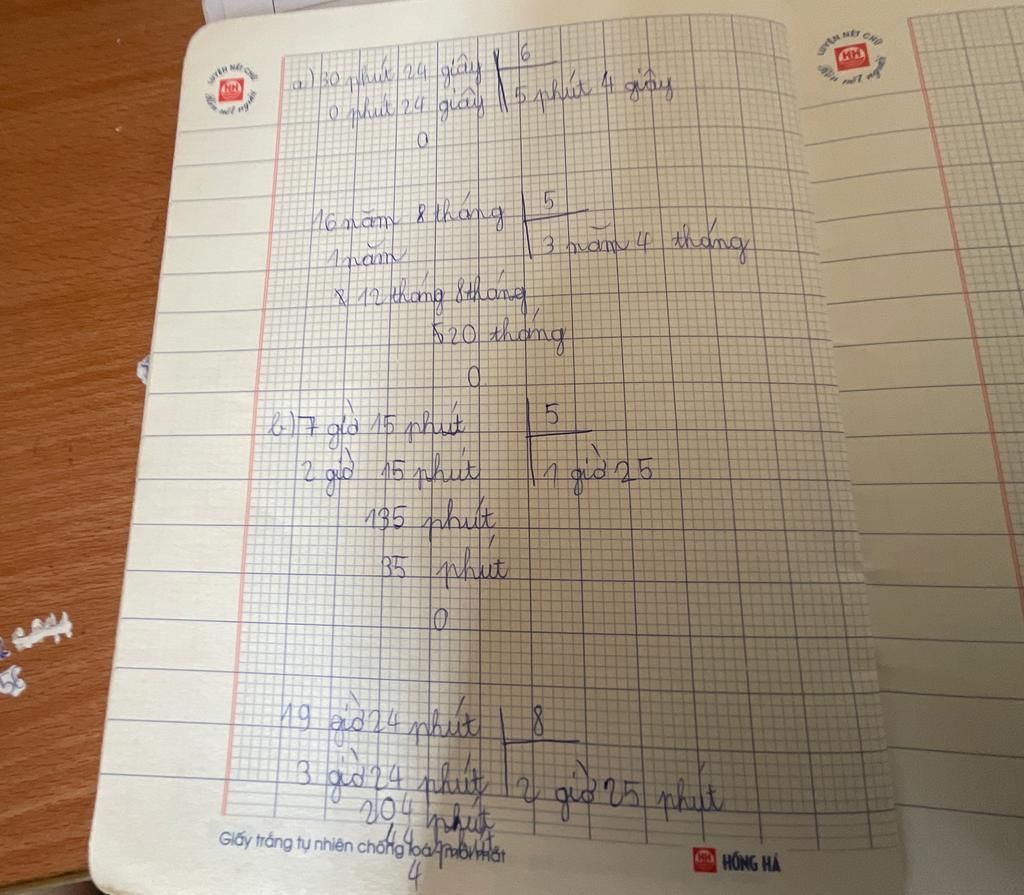 LUYỆN NÉT CHỮ
HH
Rèn nết người
LUYỆN NÉT CHỮ
HH
Rèn nết người
a) 30 phút 24 giây | 6
0 phút 24 giây | 5 phút 4 giây
0
16 năm 8 tháng | 5
1 năm | 3 năm 4 tháng
12 tháng 8 tháng
20 tháng
0
b) 7 giờ 15 phút | 5
2 giờ 15 phút | 1 giờ 25
135 phút
35 phút
0
19 giờ 24 phút | 8
3 giờ 24 phút | 2 giờ 25 phút
204 phút
44 phút
4
Giấy trắng tự nhiên chống loá, mỏi mắt
HH HỒNG HÀ
56